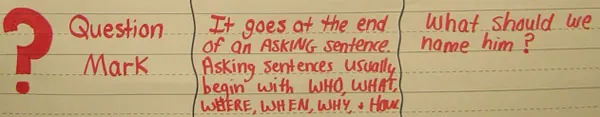 ?
Question
Mark
It goes at the end
of an ASKING sentence.
Asking sentences usually
begin with WHO, WHAT,
WHERE, WHEN, WHY, + How
What should we
name him?